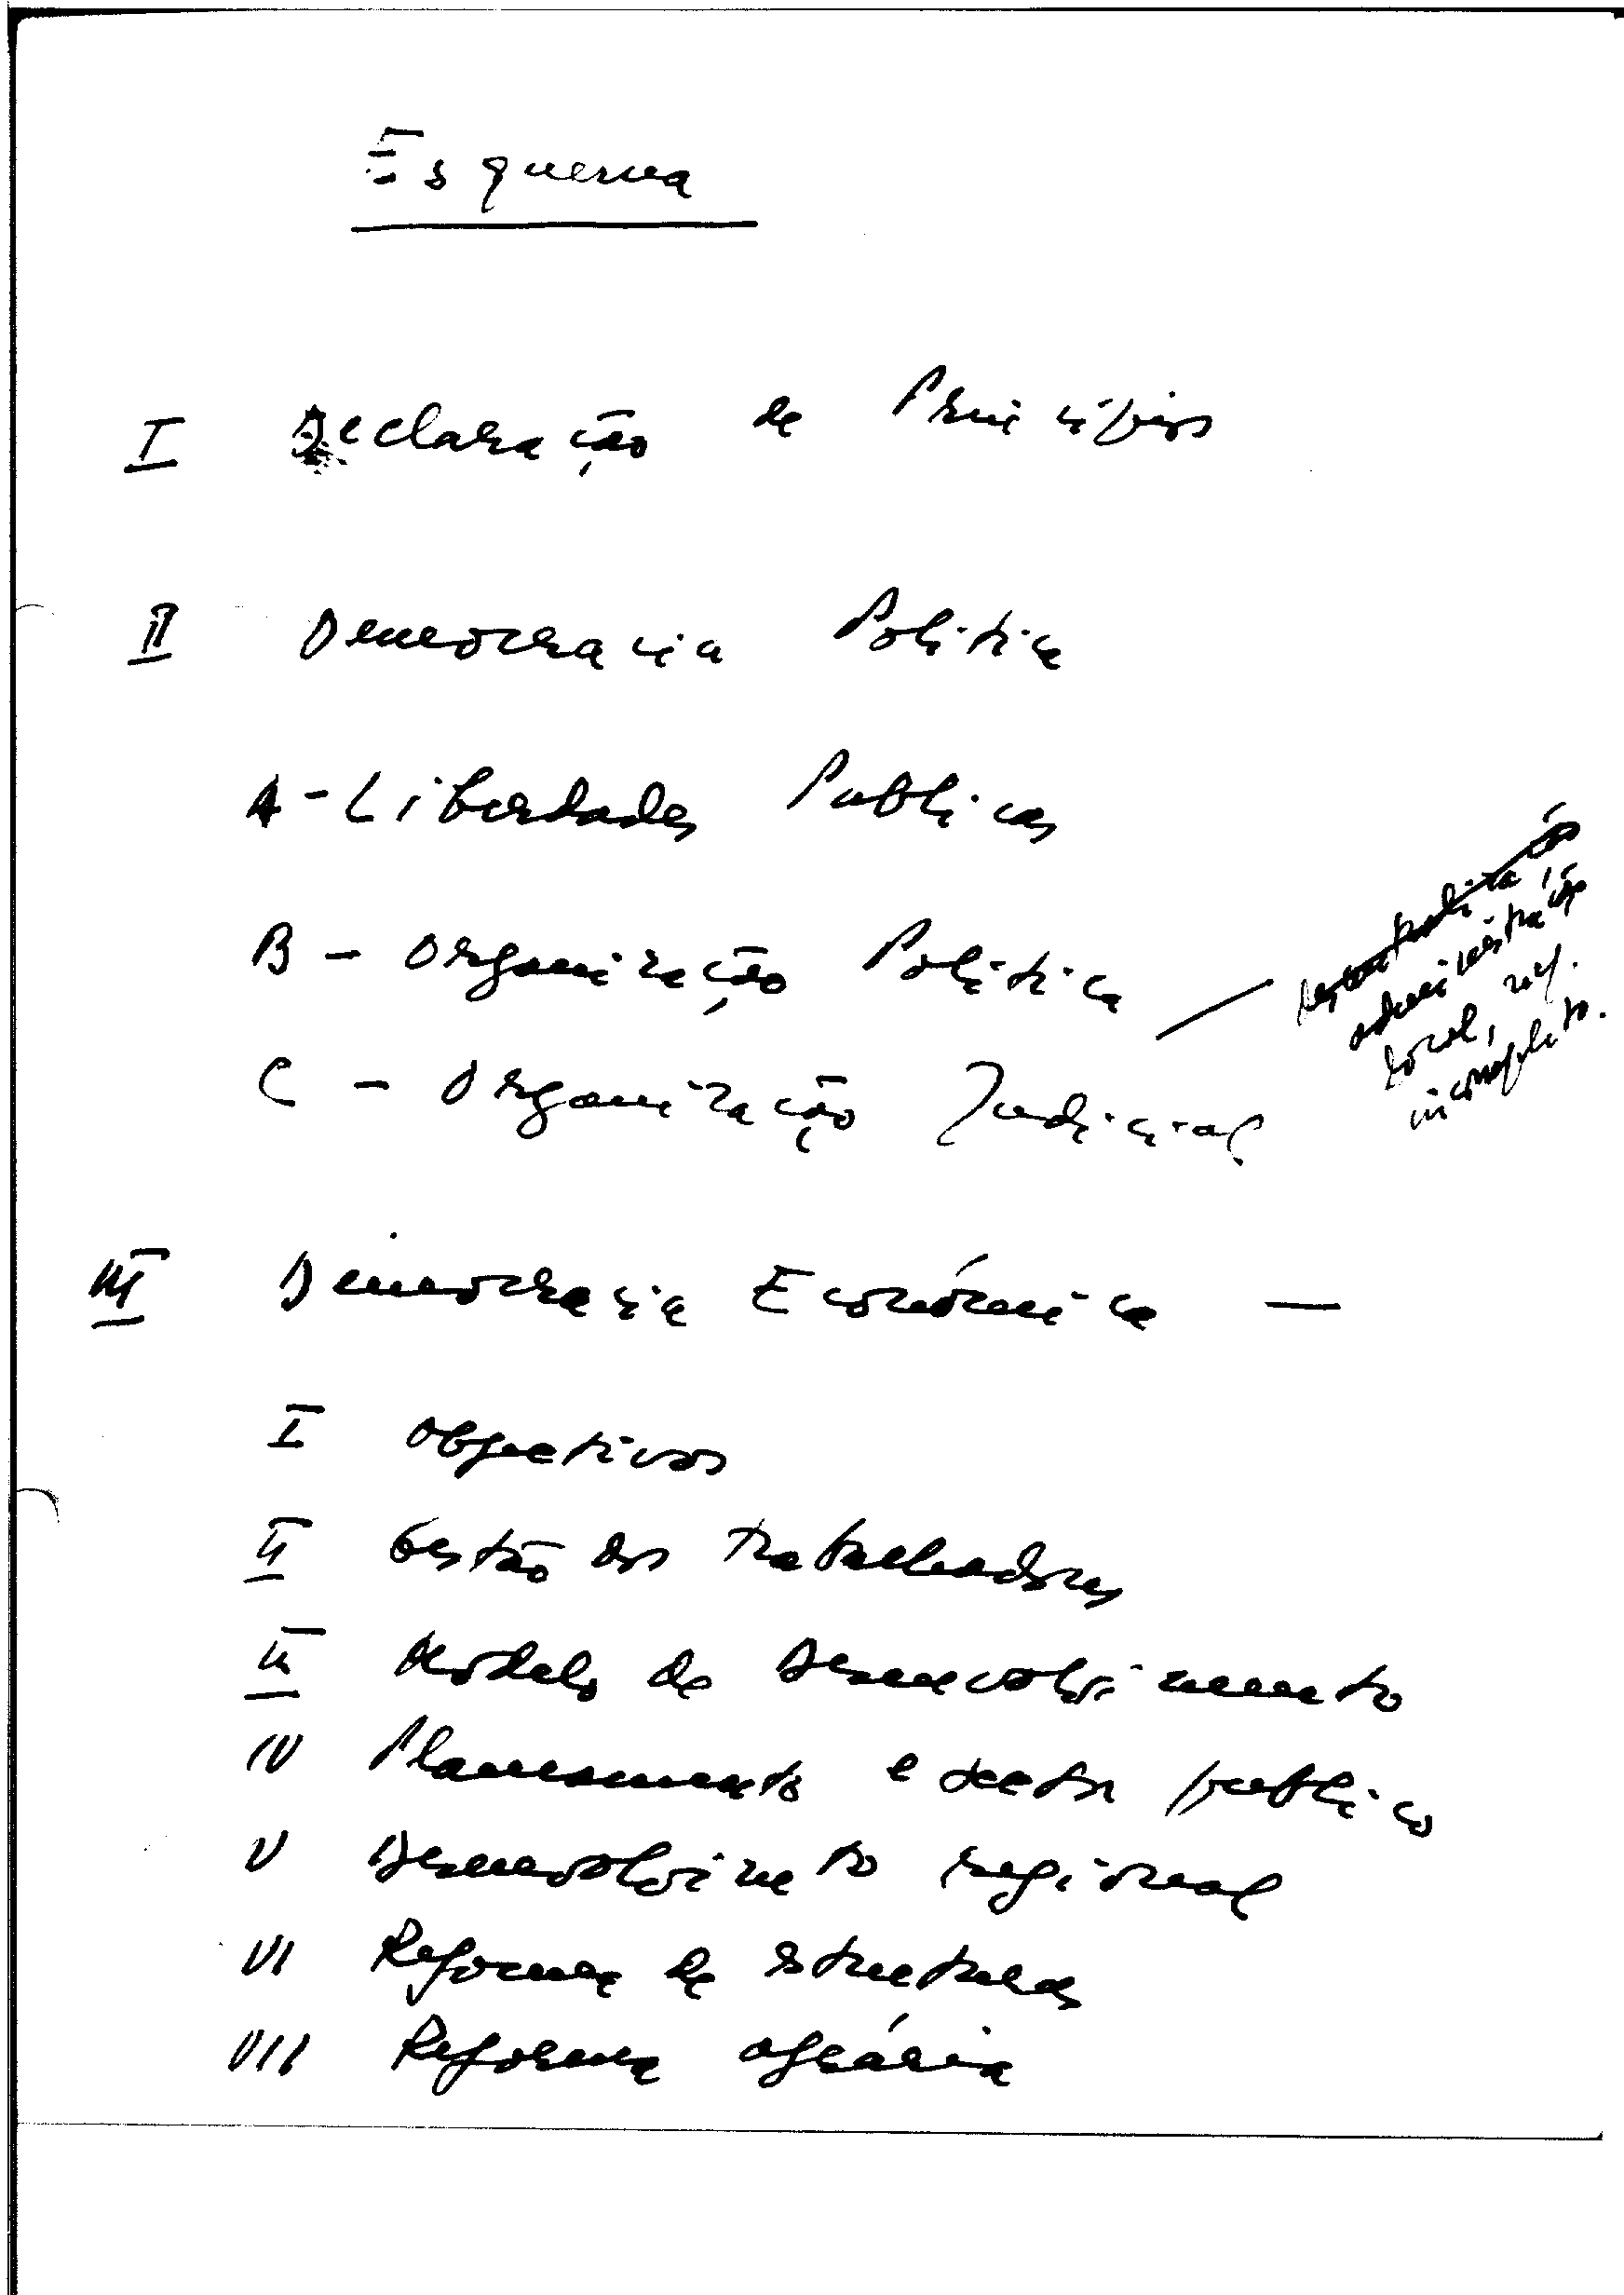 Esquema
I Declaração de Princípios
II Democracia Politica
A - Liberdades Publicas
B - Organização Politica
descentralização
administração
local, reg.
incompleto.
C - Organização Judicial
III Democracia Económica —
I Objectivos
II Gestão dos trabalhadores
III Modelo de Desenvolvimento
IV Planeamento e sector publico
V Desenvolvimento regional
VI Reforma de estruturas
VII Reforma agrária